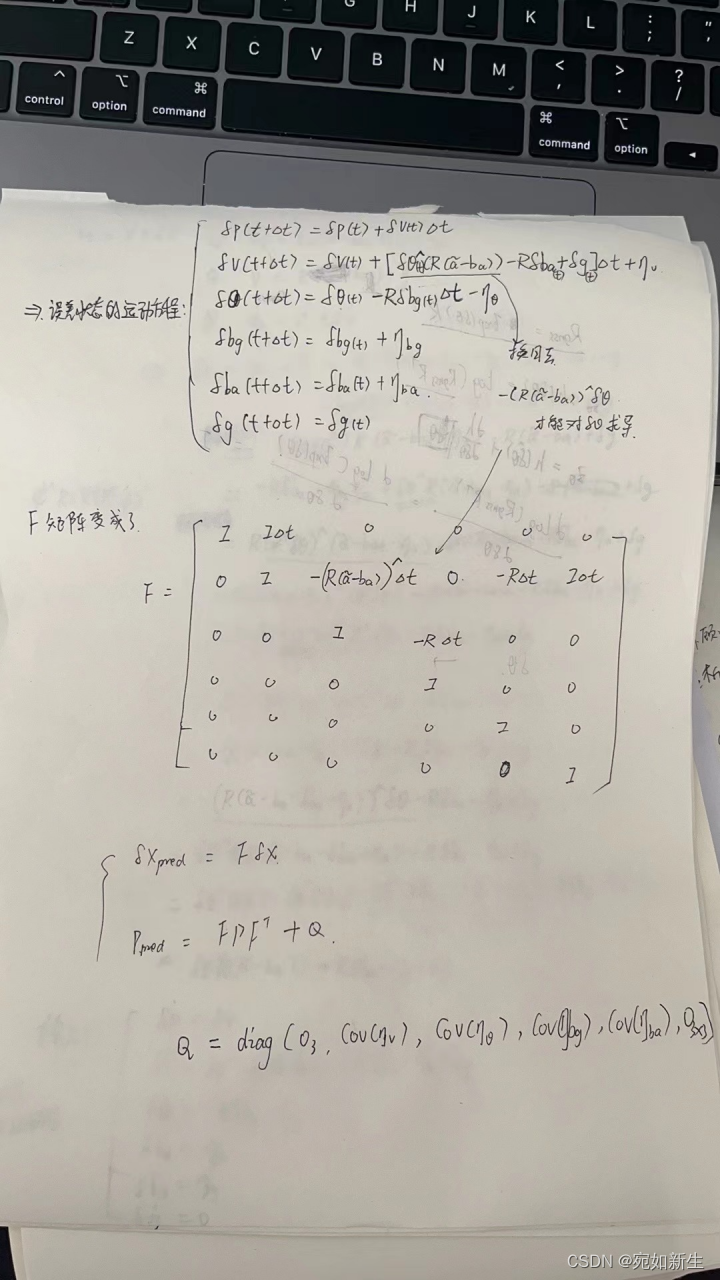 G H J K L : ; " '
Z X C V B N M < , > . ? /
control option command command option
δp(t+Δt) = δp(t) + δv(t)Δt
δv(t+Δt) = δv(t) + [δθ^(R(ã-ba)) - Rδba + δg]Δt + ηv
⇒ 误差状态的运动方程: δθ(t+Δt) = δθ(t) - Rδbg(t)Δt - ηθ
δbg(t+Δt) = δbg(t) + ηbg
换回去
δba(t+Δt) = δba(t) + ηba.
-(R(ã-ba))^δθ
δg(t+Δt) = δg(t)
才能对δθ求导.
F矩阵变成了
F =
I IΔt 0 0 0 0
0 I -(R(ã-ba))^Δt 0. -RΔt IΔt
0 0 I -RΔt 0 0
0 0 0 I 0 0
0 0 0 0 I 0
0 0 0 0 0 I
δXpred = FδX.
Ppred = FPF^T + Q.
Q = diag(O3, Cov(ηv), Cov(ηθ), Cov(ηbg), Cov(ηba), O3x3)
CSDN @宛如新生